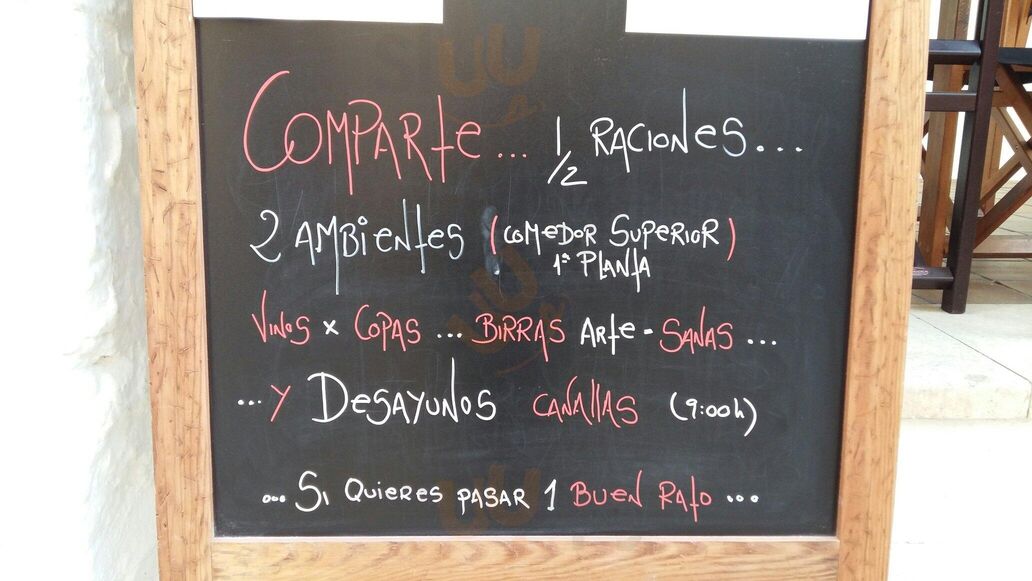 COMPARTE... 1/2 RACIONES...
2 AMBIENTES (COMEDOR SUPERIOR)
1ª PLANTA
VINOS x COPAS ... BIRRAS ARTE-SANAS ...
...Y DESAYUNOS CANALLAS (9:00h)
...SI QUIERES PASAR 1 BUEN RATO ...